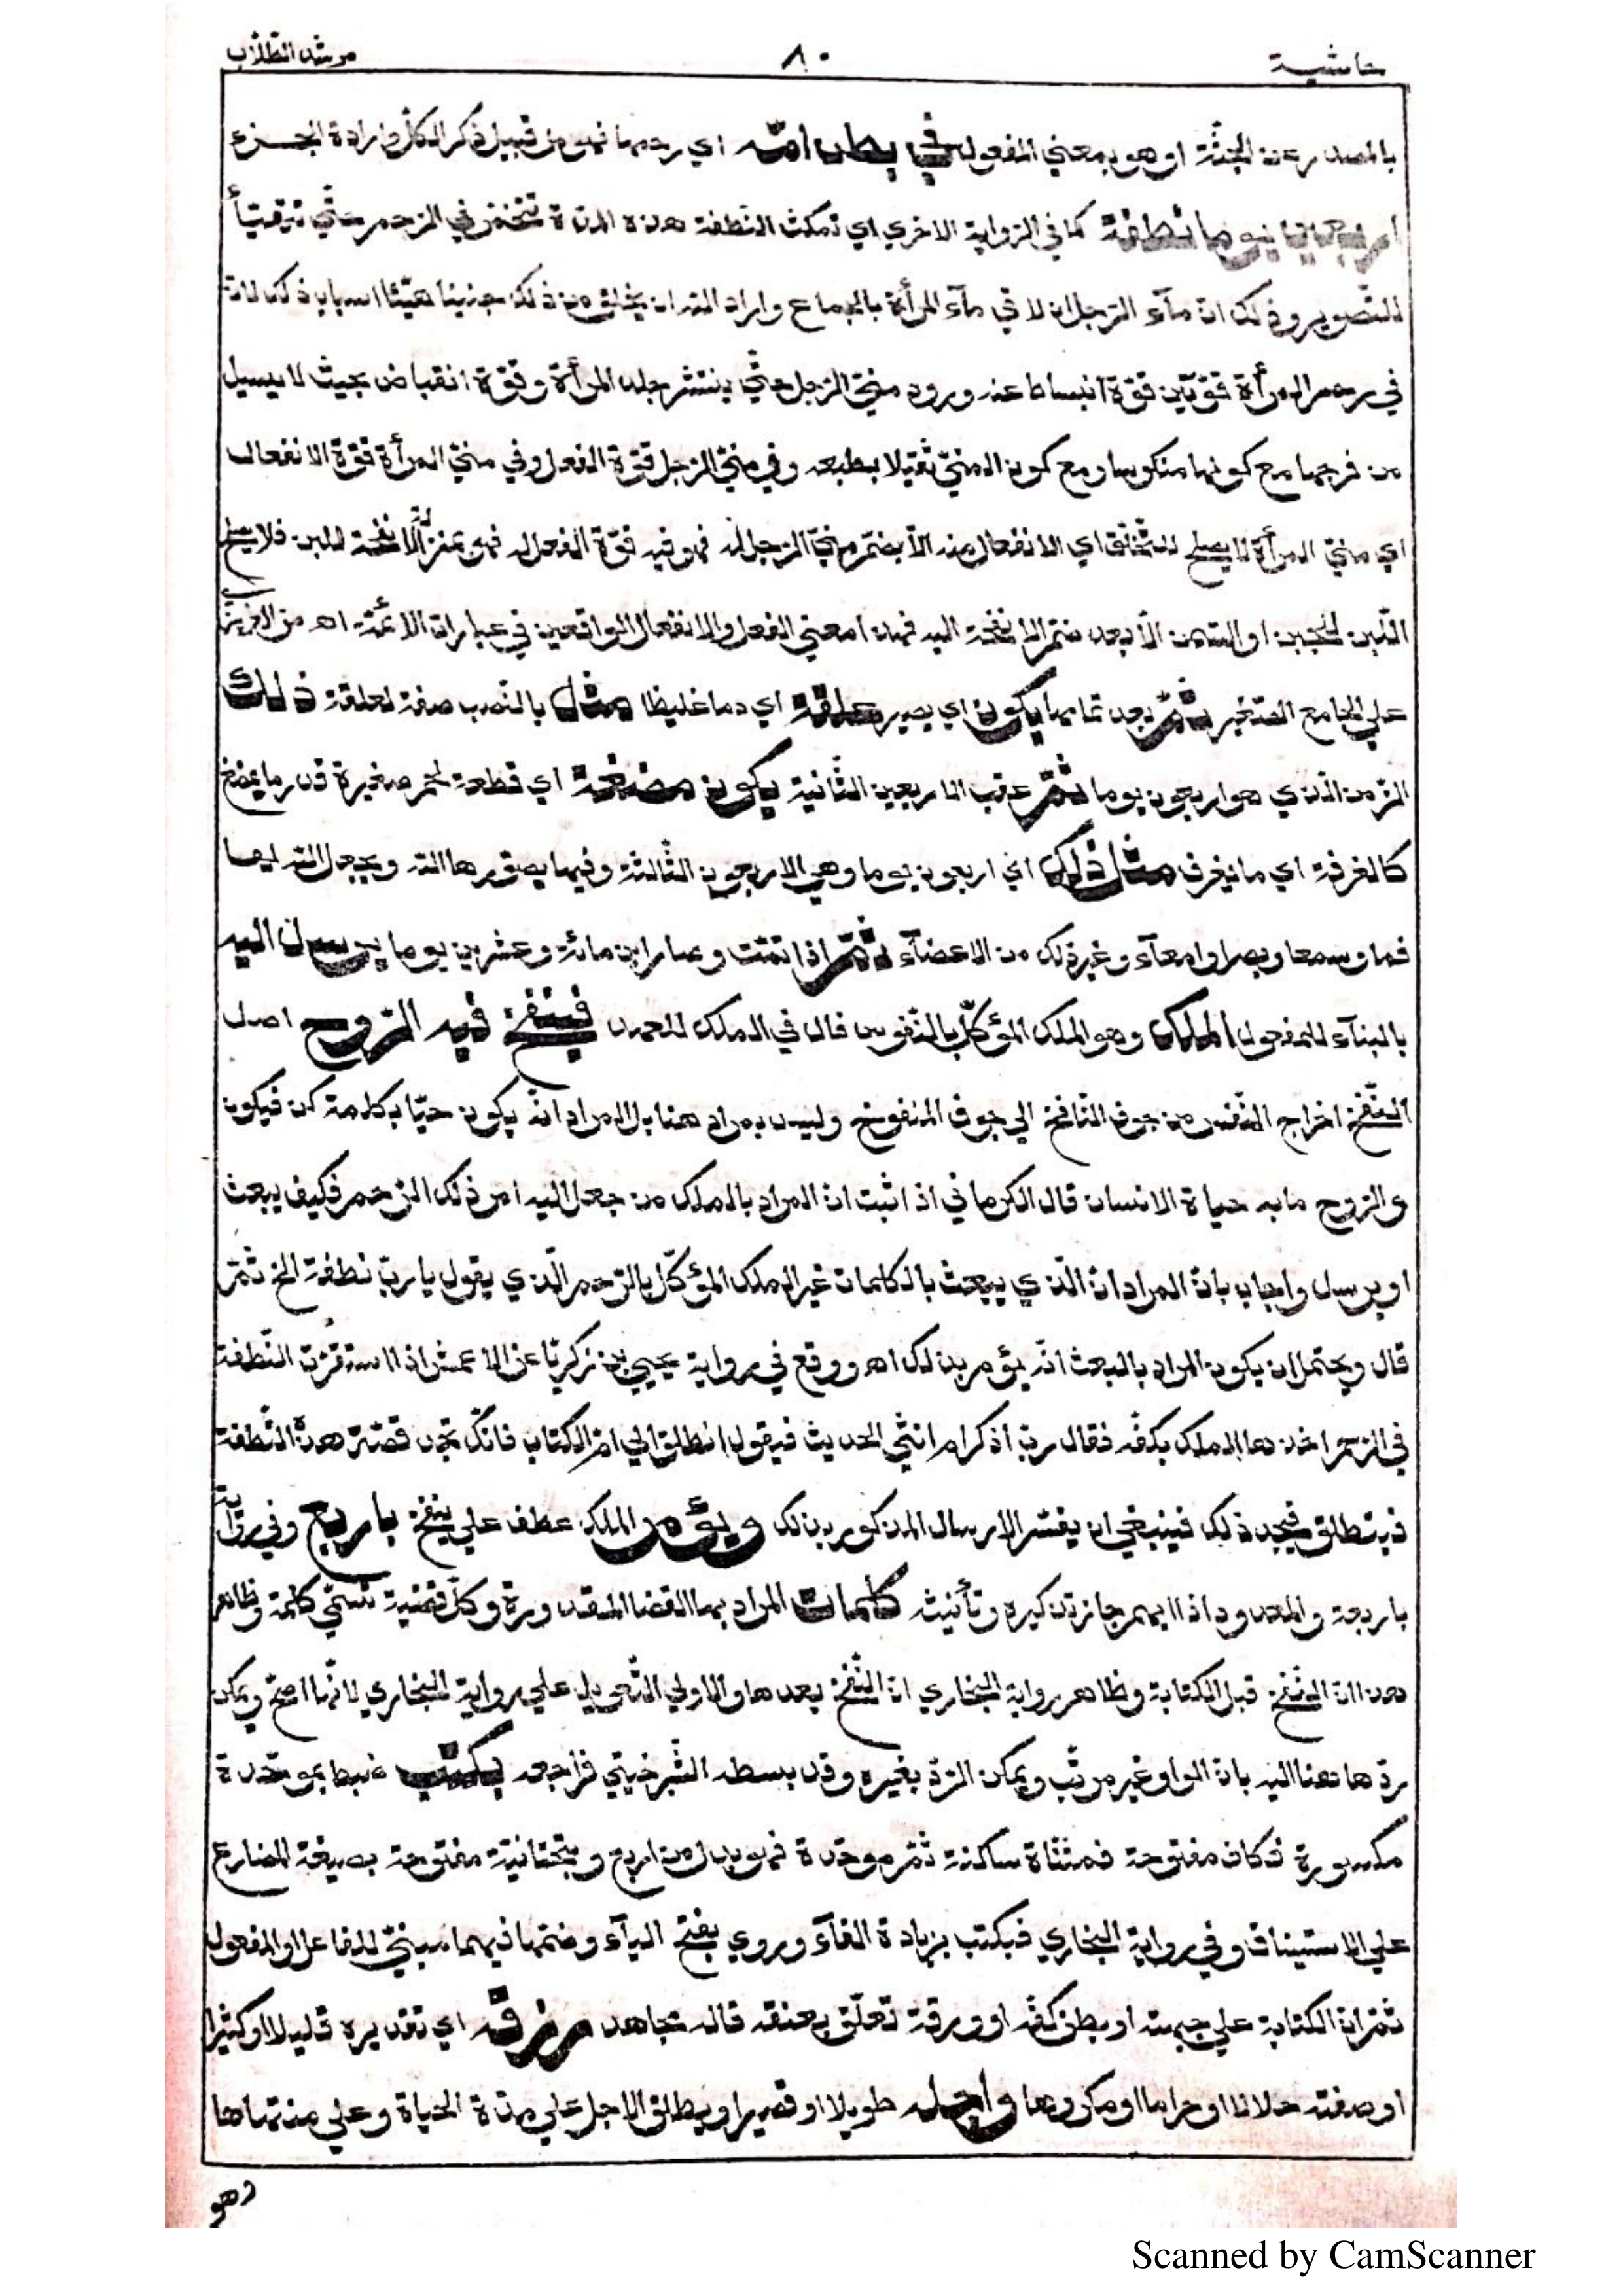 حاشية ٨٠ مرشد الطّلّاب
بالمصدر عن الجثّة او هو بمعني المفعول في بطن امّه اي رحمها فهو من قبيل ذكر الكلّ وارادة الجزء
اربعين يوما نطفة كما في الرّواية الاخري اي تمكث النّطفة هذه المدّة تتخمّر في الرّحم حتّي تتهيّأ
للتّصوير وذلك انّ مآء الرّجل ان لاقي مآء المرأة بالجماع واراد اللّه ان يخلق من ذلك جنينا هيّئا اسباب ذلك لانّ
في رحم المرأة قوّتين قوّة انبساط عند ورود منيّ الرّجل حتّي ينتشر جلد المرأة وقوّة انقباض بحيث لا يسيل
من فرجها مع كونها منكوسا ومع كون المنيّ ثقيلا بطبعه وفي منيّ الرّجل قوّة الفعل وفي منيّ المرأة قوّة الانفعال
اي منيّ المرأة لا يصلح للتّخلّق اي الانفعال منه الّا بضمّ منيّ الرّجل له فهو فيه قوّة الفعل له فهو بمنزلة الانفحة للبن فلا يصلح
اللّبن للجبن او السّمن الّا بعد ضمّ الانفحة اليه فهذا معني الفعل والانفعال الواقعين في عبارات الائمّة اه من العزيزيّ
علي الجامع الصّغير ثمّ بعد تمامها يكون اي يصير علقة اي دما غليظا مثل بالنّصب صفة لعلقة ذلك
الزّمن الّذي هو اربعون يوما ثمّ عقب الاربعين الثّانية يكون مضغة اي قطعة لحم صغيرة قدر ما يمضغ
كالغرفة اي ما يغرف مثل ذلك اي اربعون يوما وهي الاربعون الثّالثة وفيها يصوّرها اللّه ويجعل اللّه لها
فما وسمعا وبصرا وامعآء وغير ذلك من الاعضآء ثمّ اذا تمّت وصار ابن مائة وعشرين يوما يرسل اليه
بالبنآء للمفعول الملك وهو الملك المؤكّل بالنّفوس فال في الملك للعهد فينفخ فيه الرّوح اصل
النّفخ اخراج النّفس من جوف النّافخ الي جوف المنفوخ وليس بمراد هنا بل المراد انّه يكون حيّا بكلمة كن فيكون
والرّوح ما به حياة الانسان قال الكرماني اذ اثبت ان المراد بالملك من جعل اليه امر ذلك الرّحم فكيف يبعث
او يرسل واجاب بانّ المراد انّ الّذي يبعث بالكلمات غير الملك المؤكّل بالرّحم الّذي يقول يا ربّ نطفة الخ ثمّ
قال ويحتمل ان يكون المراد بالبعث انّه يؤمر بذلك اه ووقع في رواية يحيي بن زكريّا عن الاعمش اذا استقرّت النّطفة
في الرّحم اخذها الملك بكفّه فقال ربّ أذكر ام انثي الحديث فيقول انطلق الي امّ الكتاب فانّك تجد قصّة هذه النّطفة
فينطلق فيجد ذلك فينبغي ان يفسّر الارسال المذكور بذلك ويؤمر الملك عطف علي ينفخ باربع وفي رواية
باربعة والمعدود اذا ابهم جاز تذكيره وتأنيثه كلمات المراد بها القضايا المقدورة وكلّ قضية تسمّي كلمة وظاهر
هذا انّ النّفخ قبل الكتابة وظاهر رواية البخاري انّ النّفخ بعدها والاولي التّعويل علي رواية البخاري لانّها اصحّ ويمكن
ردّ ها هنا اليه بانّ الواو غير مرتّب ويمكن الرّدّ بغيره وقد بسطه الشّبرخيتي فراجعه بكتب ضبط بموحّدة
مكسورة فكاف مفتوحة فمثنّاة ساكنة ثمّ موحّدة فهو بدل من اربع وبتحتانيّة مفتوحة بصيغة المضارع
علي الاستيناف وفي رواية البخاري فيكتب بزيادة الفآء وروي بفتح اليآء وضمّها فيهما مبنيّ للفاعل او المفعول
ثمّ انّ الكتابة علي جبهته او بطن كفّه او ورقة تعلّق بعنقه قاله مجاهد رزقه اي تقديره قليلا او كثيرا
او صفته حلالا او حراما او مكروها واجله طويلا او قصيرا ويطلق الاجل علي مدّة الحياة وعلي منتهاها
وهو
Scanned by CamScanner